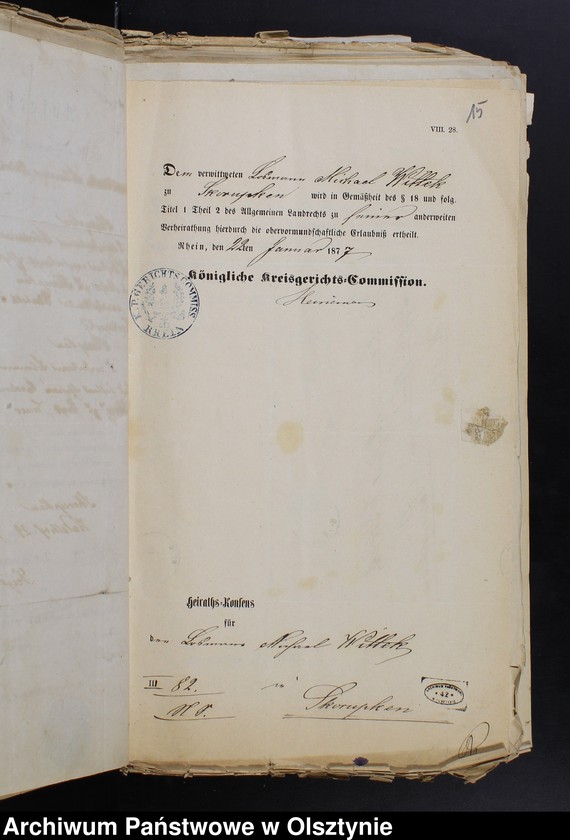 15
VIII. 28.
Dem verwittweten Losmann Michael Wittek
zu Skorupken wird in Gemäßheit des § 18 und folg.
Titel 1 Theil 2 des Allgemeinen Landrechts zu seiner anderweiten
Verheirathung hierdurch die obervormundschaftliche Erlaubniß ertheilt.
Rhein, den 22ten Januar 1877
Königliche Kreisgerichts-Commission.
K. P. GERICHTS COMMISS
RHEIN
Heiraths-Konsens
für
den Losmann Michael Wittek
III 82. in
Skorupken
Archiwum Państwowe w Olsztynie